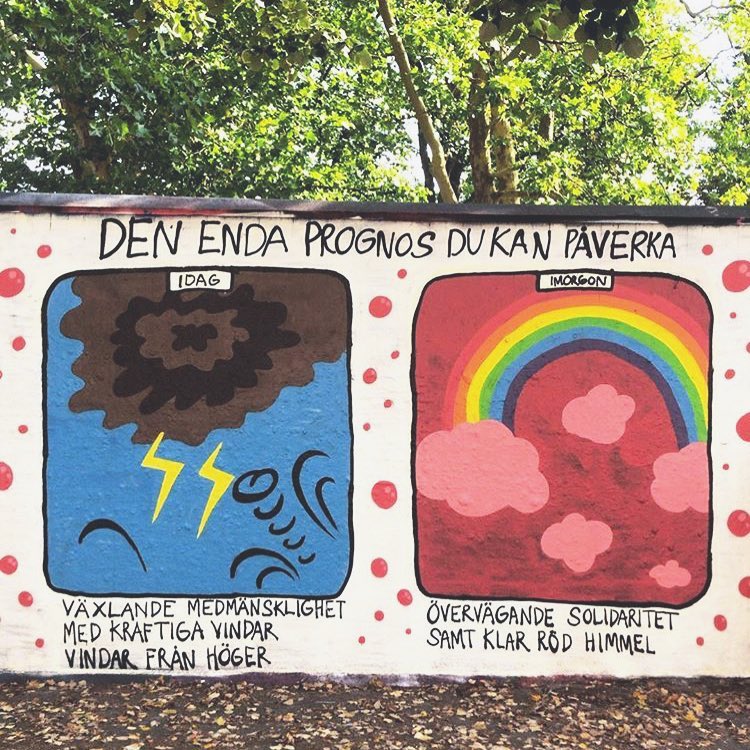 DEN ENDA PROGNOS DU KAN PÅVERKA
IDAG
VÄXLANDE MEDMÄNSKLIGHET
MED KRAFTIGA VINDAR
VINDAR FRÅN HÖGER
IMORGON
ÖVERVÄGANDE SOLIDARITET
SAMT KLAR RÖD HIMMEL